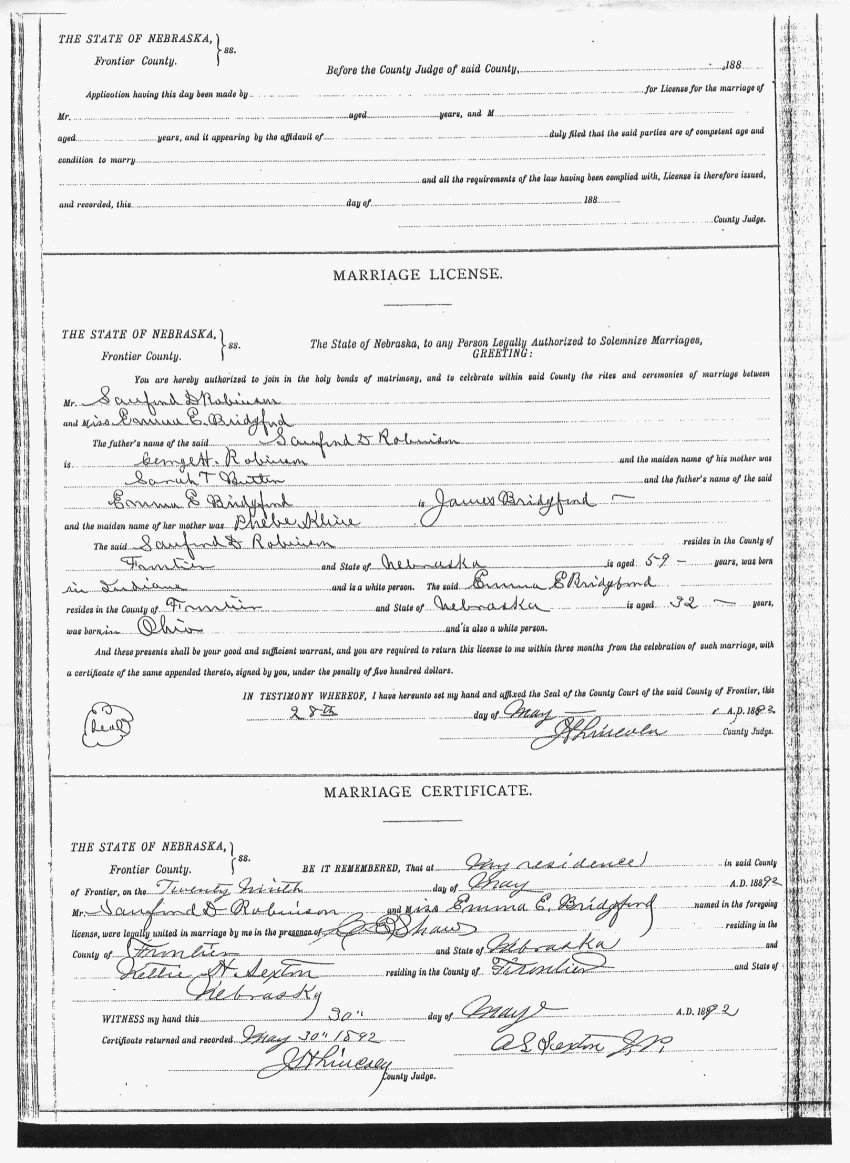 THE STATE OF NEBRASKA, } ss.
Frontier County.
Before the County Judge of said County, 188
Application having this day been made by for License for the marriage of
Mr. aged years, and M
aged years, and it appearing by the affidavit of duly filed that the said parties are of competent age and
condition to marry
and all the requirements of the law having been complied with, License is therefore issued,
and recorded, this day of 188
County Judge.
MARRIAGE LICENSE.
THE STATE OF NEBRASKA, } ss.
Frontier County.
The State of Nebraska, to any Person Legally Authorized to Solemnize Marriages,
GREETING:
You are hereby authorized to join in the holy bonds of matrimony, and to celebrate within said County the rites and ceremonies of marriage between
Mr. Sanford D Robinson
and Miss Emma E. Bridgford
The father's name of the said Sanford D Robinson
is George H. Robinson and the maiden name of his mother was
Sarah T and the father's name of the said
Emma E Bridgford is James Bridgford —
and the maiden name of her mother was Phebe Kline
The said Sanford D Robinson resides in the County of
Frontier and State of Nebraska is aged 59 — years, was born
in Indiana and is a white person. The said Emma E Bridgford
resides in the County of Frontier and State of Nebraska is aged 32 — years,
was born, in Ohio and is also a white person.
And these presents shall be your good and sufficient warrant, and you are required to return this license to me within three months from the celebration of such marriage, with
a certificate of the same appended thereto, signed by you, under the penalty of five hundred dollars.
IN TESTIMONY WHEREOF, I have hereunto set my hand and affixed the Seal of the County Court of the said County of Frontier, this
28th day of May A.D. 1892
(Seal)
County Judge.
MARRIAGE CERTIFICATE.
THE STATE OF NEBRASKA, } ss.
Frontier County.
BE IT REMEMBERED, That at my residence in said County
of Frontier, on the Twenty Ninth day of May A.D. 1892
Mr Sanford D Robinson and Miss Emma E. Bridgford named in the foregoing
license, were legally united in marriage by me in the presence of Shaw residing in the
County of Frontier and State of Nebraska and
Nellie H. Sexton residing in the County of Frontier and State of
Nebraska
WITNESS my hand this 30" day of May A.D. 1892
Certificate returned and recorded May 30" 1892
A S Sexton J.P.
County Judge.